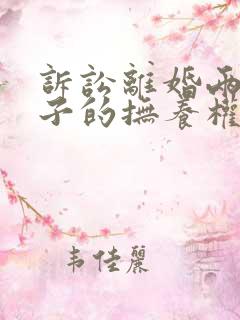 訴訟離婚兩
子的撫養權
韦佳麗